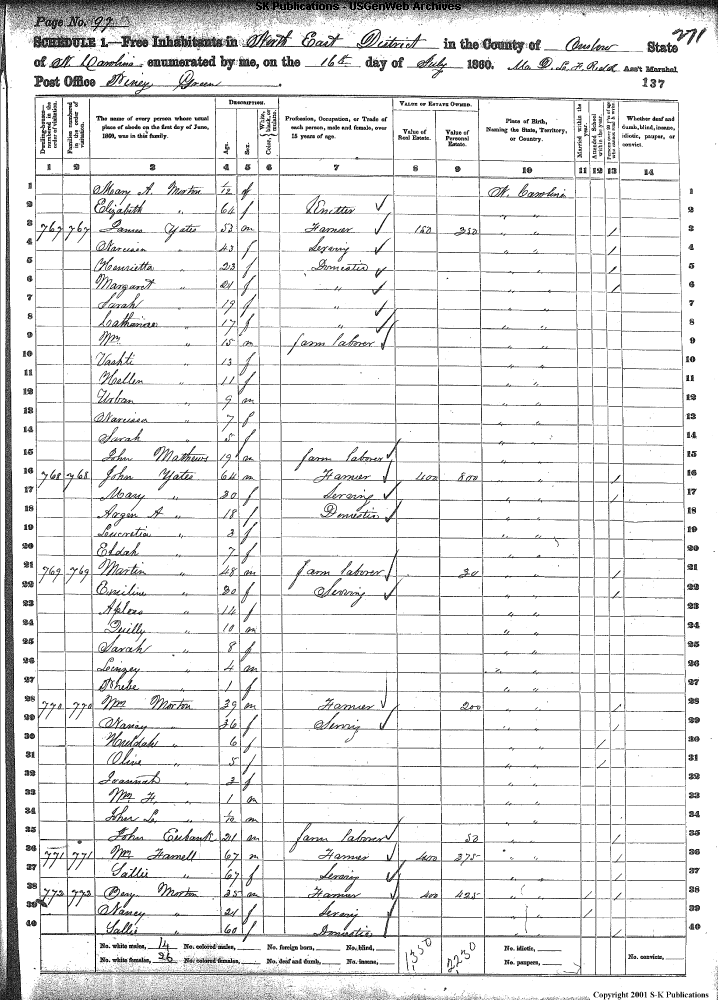 SK Publications - USGenWeb Archives
Page No. 97
271
SCHEDULE 1.—Free Inhabitants in North East District in the County of Onslow State
of N. Carolina enumerated by me, on the 16th day of July 1860. Ass't Marshal.
Post Office Green
137
DESCRIPTION. VALUE OF ESTATE OWNED.
Dwelling-houses—numbered in the order of visitation. Families numbered in the order of visitation. The name of every person whose usual place of abode on the first day of June, 1860, was in this family. Age. Sex. Color, White, black, or mulatto. Profession, Occupation, or Trade of each person, male and female, over 15 years of age. Value of Real Estate. Value of Personal Estate. Place of Birth, Naming the State, Territory, or Country. Married within the year. Attended School within the year. Whether deaf and dumb, blind, insane, idiotic, pauper, or convict.
1 2 3 4 5 6 7 8 9 10 11 12 13 14
1 Mary A. Morton 1/12 f N. Carolina 1
2 Elizabeth " 64 f Knitter " " 2
3 767 767 James Yates 53 m Farmer 150 350 " " / 3
4 Narcissa " 43 f Serving " " / 4
5 Henrietta " 23 f Domestic " " / 5
6 Margaret " 21 f " " " / 6
7 Sarah " 19 f " " " 7
8 Catharine " 17 f " " " 8
9 Wm " 15 m farm laborer " " 9
10 Vashti " 13 f " " 10
11 Hellen " 11 f " " 11
12 Urban " 9 m " " 12
13 Narcissa " 7 f " " 13
14 Sarah " 5 f " " 14
15 John Mathews 19 m farm laborer " " 15
16 768 768 John Yates 64 m Farmer 400 800 " " / 16
17 Mary " 30 f Serving " " / 17
18 A " 18 f Domestic " " 18
19 Lucretia " 3 f " " 19
20 " 7 f " " 20
21 769 769 Martin " 48 m farm laborer 30 " " / 21
22 Emiline " 30 f Serving " " / 22
23 " 14 f " " 23
24 Quilly " 10 m " " 24
25 Sarah " 8 f " " 25
26 Linzey " 4 m " " 26
27 Phebe " 1 f " " 27
28 770 770 Wm Morton 39 m Farmer 200 " " / 28
29 Nancy " 36 f Serving " " / 29
30 Huldah " 6 f " " / 30
31 Olive " 5 f " " / 31
32 Joannah " 3 f " " 32
33 Wm H. " 1 m " " 33
34 John L. " m " " 34
35 John Eubank 21 m farm laborer 50 " " / 35
36 771 771 Wm Farnell 67 m Farmer 400 375 " " / 36
37 Sallie " 67 f Serving " " / 37
38 772 772 Morton 35 m Farmer 400 425 " " / / 38
39 Nancy " 21 f Serving " " / 39
40 Sallie " 60 f Domestic " " / 40
No. white males, 14 No. colored males, No. foreign born, No. blind, 1350 2230 No. idiotic,
No. white females, 26 No. colored females, No. deaf and dumb, No. insane, No. paupers, No. convicts,
Copyright 2001 S-K Publications